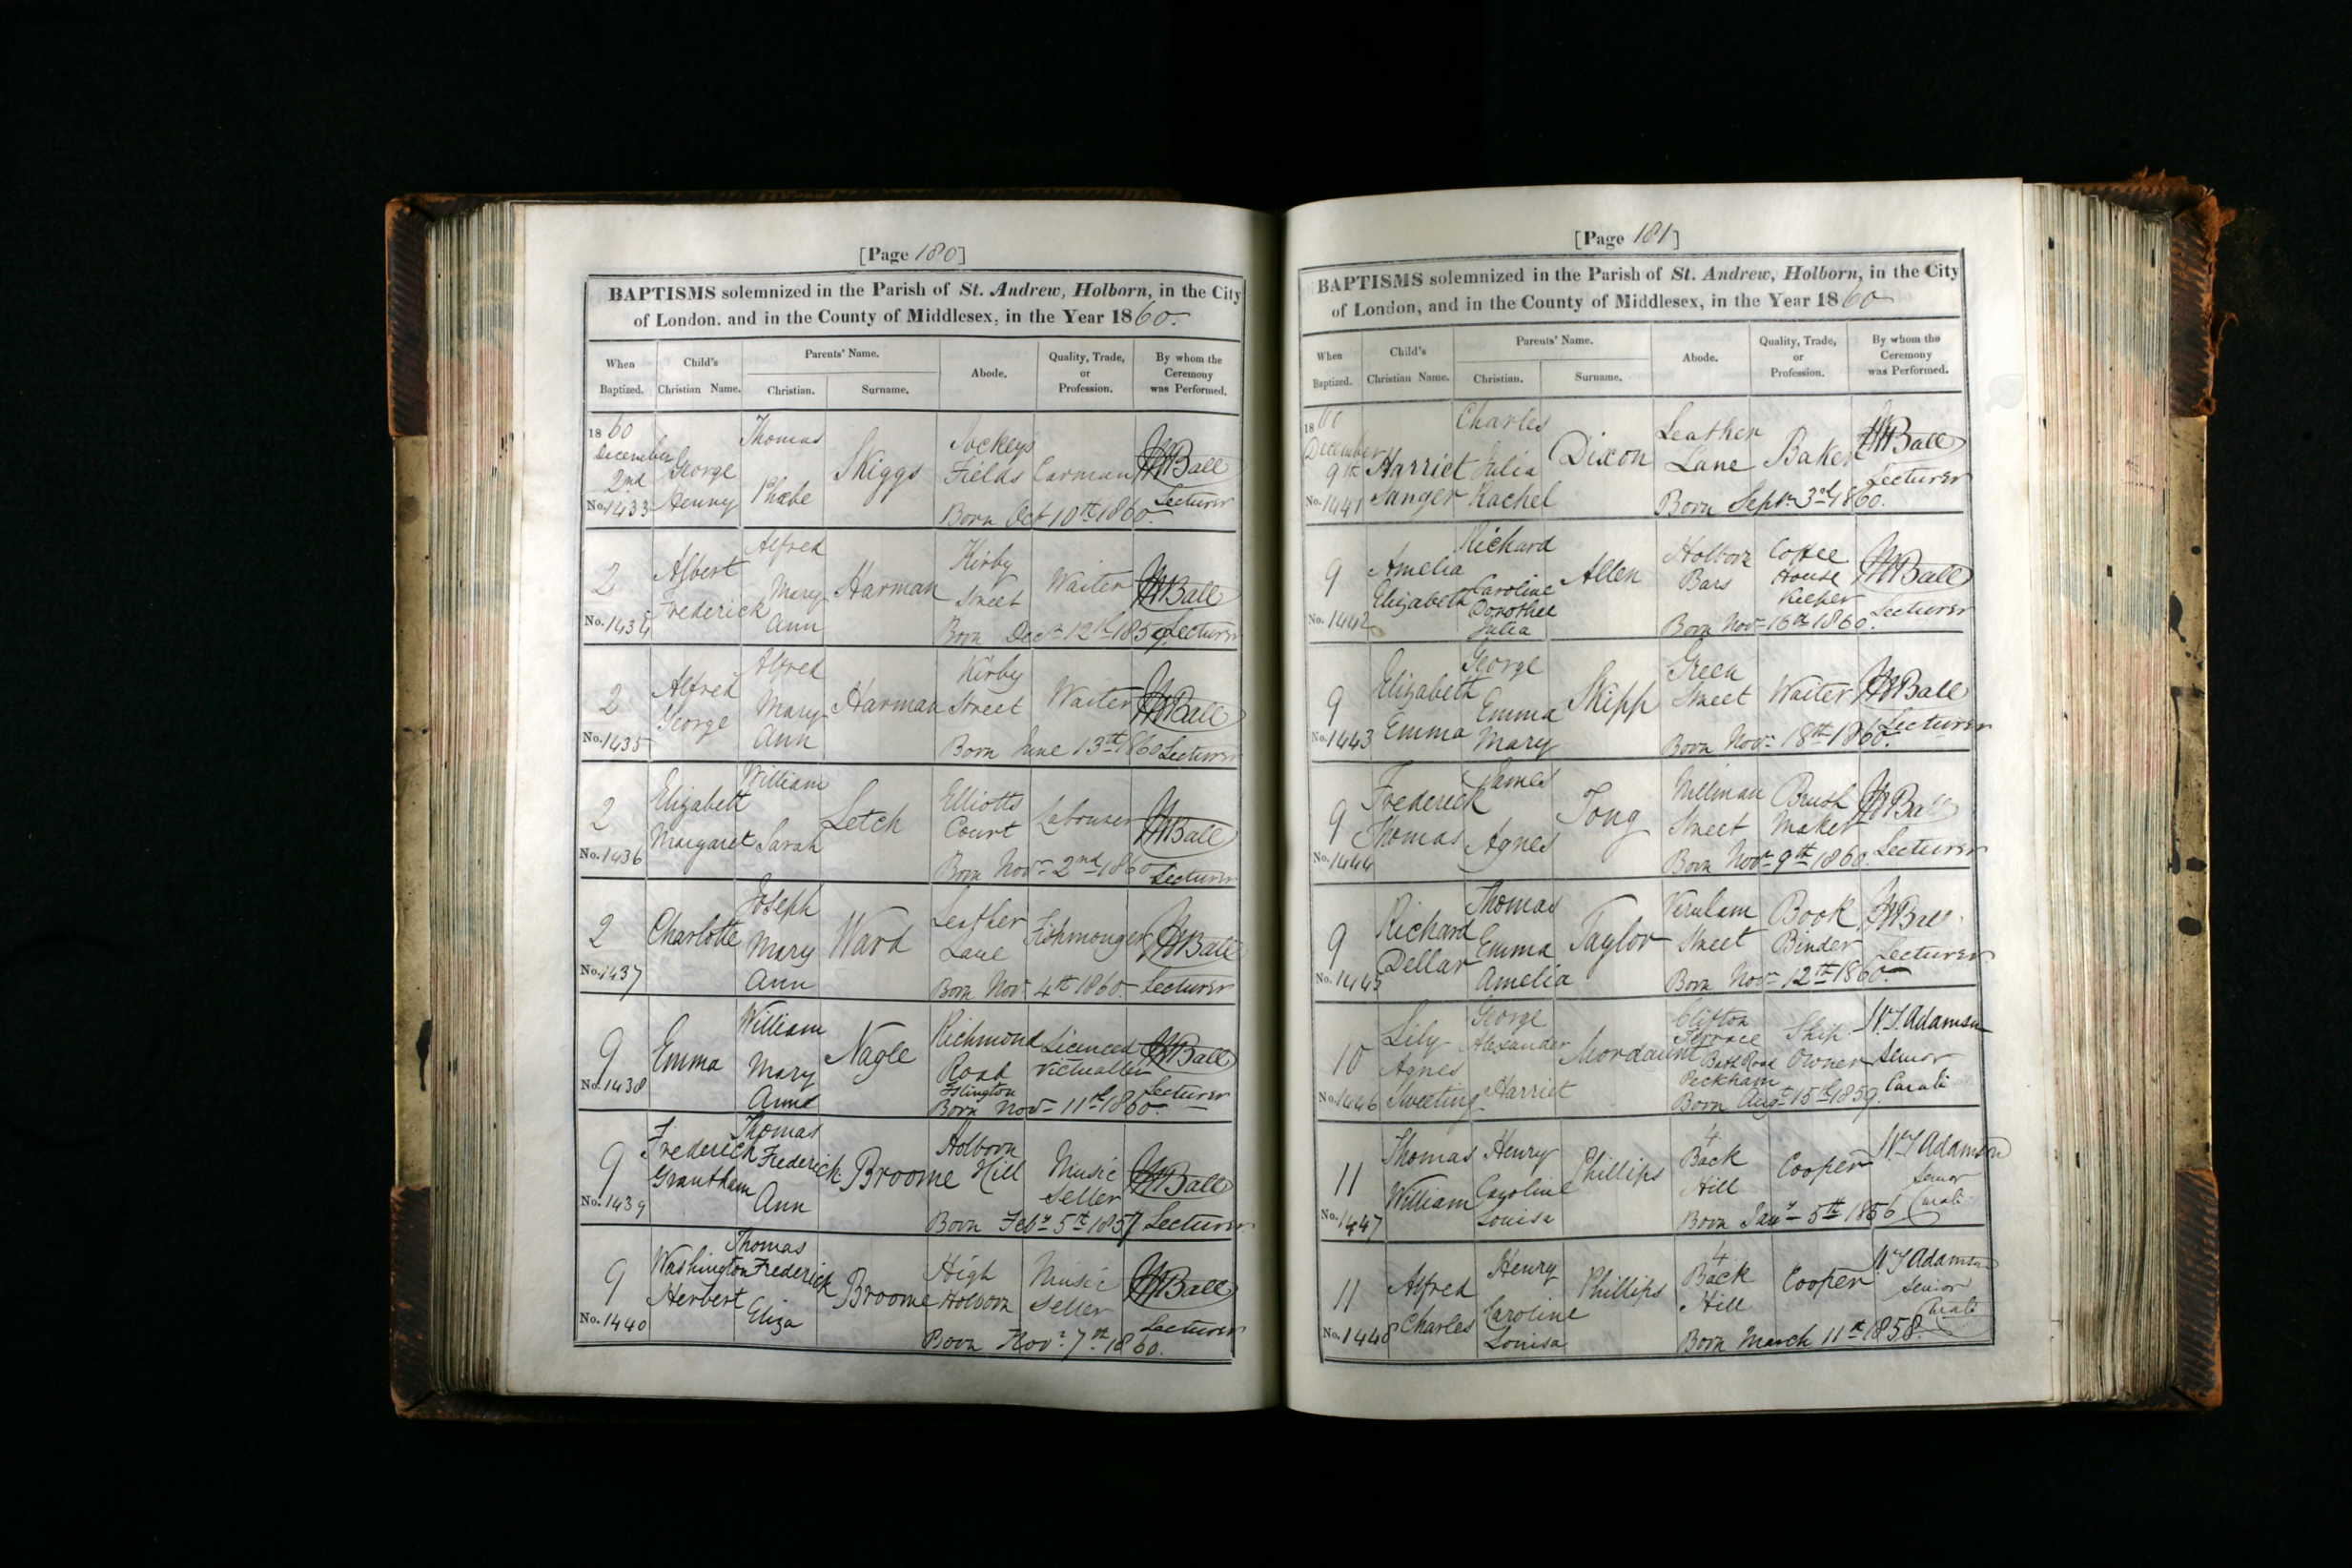 [Page 180]
BAPTISMS solemnized in the Parish of St. Andrew, Holborn, in the City
of London, and in the County of Middlesex, in the Year 1860.
When Baptized. Child's Christian Name. Parents' Name. Christian. Surname. Abode. Quality, Trade, or Profession. By whom the Ceremony was Performed.
1860 December 2nd No. 1433 George Henry Thomas Phœbe Skiggs Jockeys Fields Carman Born Oct 10th 1860. Ball Lecturer
2 No. 1434 Albert Frederick Alfred Mary Ann Harman Kirby Street Waiter Born Decr 12th 1859. Ball Lecturer
2 No. 1435 Alfred George Alfred Mary Ann Harman Kirby Street Waiter Born June 13th 1860 Ball Lecturer
2 No. 1436 Elizabeth Margaret William Sarah Letch Elliotts Court Labourer Born Novr 2nd 1860 Ball Lecturer
2 No. 1437 Charlotte Joseph Mary Ann Ward Leather Lane Fishmonger Born Novr 4th 1860. Ball Lecturer
9 No. 1438 Emma William Mary Anne Nagle Richmond Road Islington Licenced Victualler Born Novr 11th 1860. Ball Lecturer
9 No. 1439 Frederick Grantham Thomas Frederick Ann Broome Holborn Hill Music Seller Born Feby 5th 1857 Ball Lecturer
9 No. 1440 Washington Herbert Thomas Frederick Eliza Broome High Holborn Music Seller Born Novr 7th 1860. Ball Lecturer
[Page 181]
BAPTISMS solemnized in the Parish of St. Andrew, Holborn, in the City
of London, and in the County of Middlesex, in the Year 1860
When Baptized. Child's Christian Name. Parents' Name. Christian. Surname. Abode. Quality, Trade, or Profession. By whom the Ceremony was Performed.
1860 December 9th No. 1441 Harriet Sanger Charles Julia Rachel Dixon Leather Lane Baker Born Septr 3rd 1860. Ball Lecturer
9 No. 1442 Amelia Elizabeth Richard Caroline Dorothee Julia Allen Holborn Bars Coffee House Keeper Born Novr 16th 1860. Ball Lecturer
9 No. 1443 Elizabeth Emma George Emma Mary Skipp Green Street Waiter Born Novr 18th 1860. Ball Lecturer
9 No. 1444 Frederick Thomas James Agnes Tong Millman Street Brush Maker Born Novr 9th 1860. Ball Lecturer
9 No. 1445 Richard Dellar Thomas Emma Amelia Taylor Verulam Street Book Binder Born Novr 12th 1860. Ball Lecturer
10 No. 1446 Lily Agnes Sweeting George Alexander Harriet Mordaunt Clifton Terrace Peckham Ship Owner Born Augt 15th 1859. Adamson Senior Curate
11 No. 1447 Thomas William Henry Caroline Louisa Phillips 4 Back Hill Cooper Born Jany 5th 1856 Adamson Senior Curate
11 No. 1448 Alfred Charles Henry Caroline Louisa Phillips 4 Back Hill Cooper Born March 11th 1858. Adamson Senior Curate